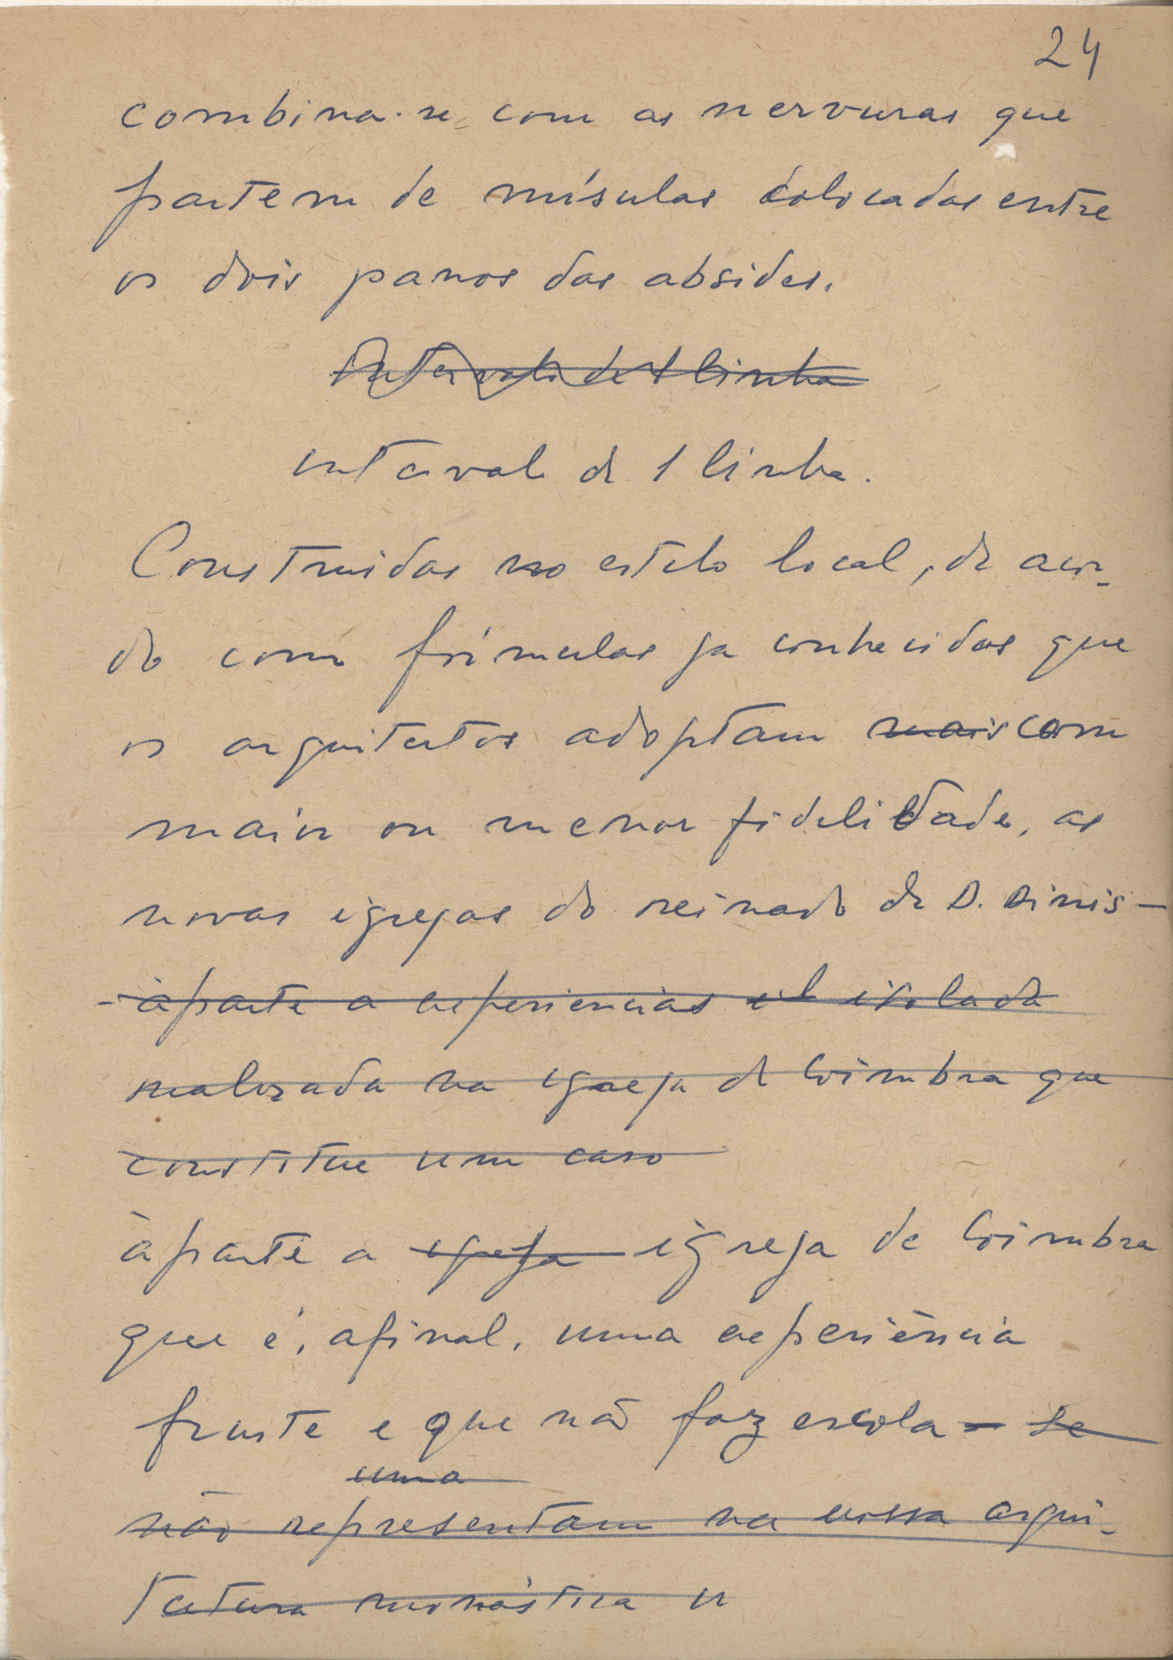 24
combina-se com as nervuras que
partem de mísulas colocadas entre
os dois panos das absides.
Intervalo de 1 linha
intervalo de 1 linha.
Construidas no estilo local, de acor-
do com fórmulas ja conhecidas que
os arquitectos adoptam mais com
maior ou menor fidelidade, as
novas igrejas do reinado de D. Dinis —
- àparte a experiencias isolada
realizada na igreja de Coimbra que
constitue um caso
àparte a igreja igreja de Coimbra
que é, afinal, uma experiência
fruste e que não faz escola — se
uma
não representam na nossa arqui-
tectura monástica